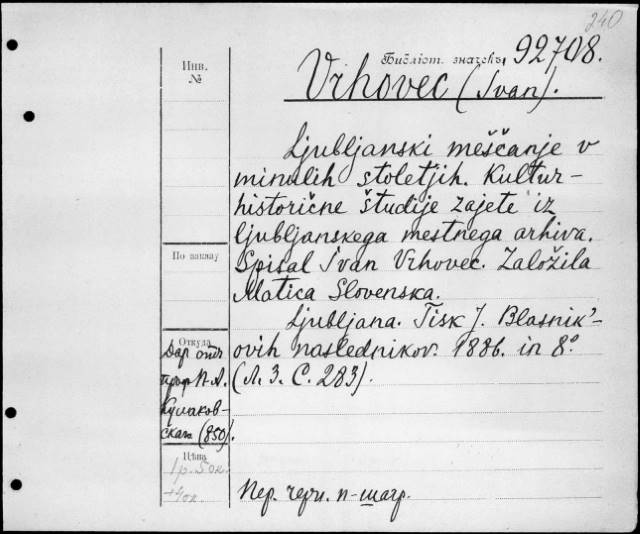 240
Инв.
№
Библіот. значекъ 92708.
Vrhovec (Ivan).
Ljubljanski meščanje v
minulih stoletjih. Kultur-
historične študije zajete iz
ljubljanskega mestnega arhiva.
Spisal Ivan Vrhovec. Založila
Matica Slovenska.
Ljubljana. Tisk J. Blasnik'-
ovih naslednikov. 1886. in 8°
(Л. З. С. 283).
По заказу
Откуда
Даръ отъ
проф. П. А.
Кулаков-
скаго (850).
Цѣна
1 р. 50 к.
+40 к.
Пер. черн. п-шагр.